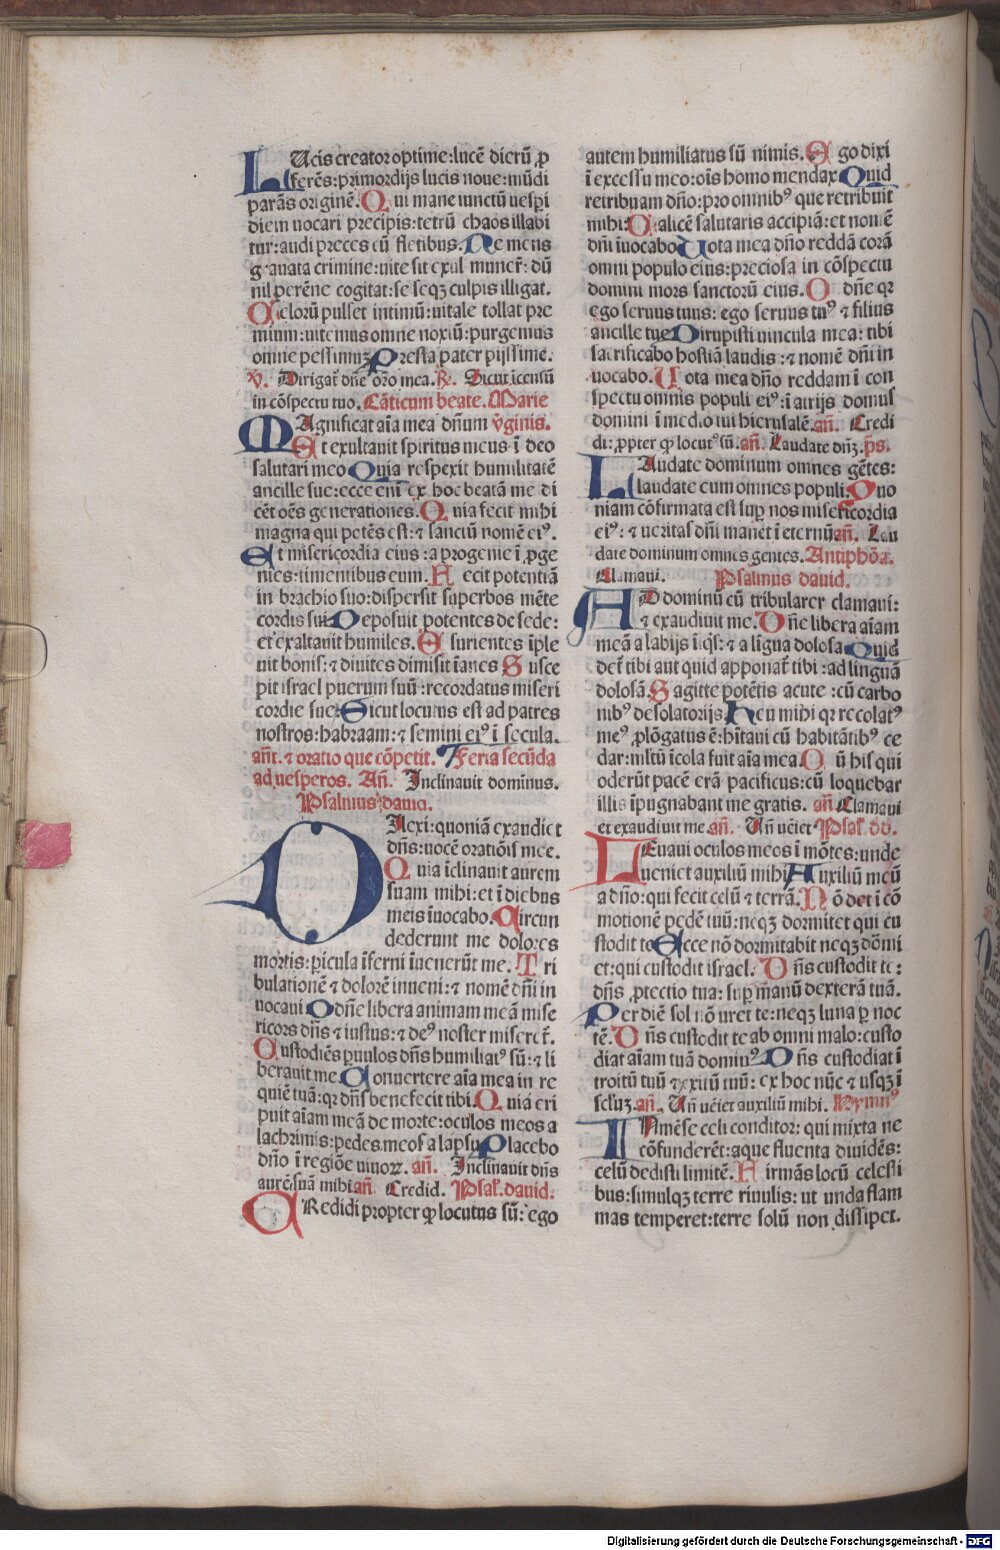 LUcis creator optime:lucē dierū ꝓ
ferēs:primordijs lucis noue:mūdi
parās originē. Qui mane iunctū vesꝑi
diem vocari precipis:tetrū chaos illabi
tur:audi preces cū fletibus. Ne mens
grauata crimine:vite sit exul muner̄: dū
nil perēne cogitat:se seqꝫ culpis illigat.
Celorū pulset intimū:vitale tollat pre
mium:vitemus omne noxiū:purgemus
omne pessimuꝫ Presta pater pijssime.
v̄. Dirigat̄ dn̄e or̄o mea. R̄. Sicut icensū
in cōspectu tuo. Cāticum beate. Marie
MAgnificat aīa mea dn̄um v̄ginis.
Et exultauit spiritus meus i deo
salutari meo Quia respexit humilitatē
ancille sue:ecce eni ex hoc beatā me di
cēt oēs generationes. Quia fecit mihi
magna qui potēs est: ⁊ sanctū nomē eiꝰ.
Et misericordia eius :a progenie ī ꝓge
nies:timentibus eum. Fecit potentiā
in brachio suo:dispersit superbos mēte
cordis sui Deposuit potentes de sede:
et exaltauit humiles. Esurientes iple
uit bonis: ⁊ diuites dimisit īanes Susce
pit israel puerum suū :recordatus miseri
cordie sue Sicut locutus est ad patres
nostros:habraam: ⁊ semini eiꝰ ī secula.
an̄t. ⁊ oratio que cōpetit. Feria secūda
ad vesperos. An̄. Inclinauit dominus.
Psalmus dauid.
DIlexi:quoniā exaudiet
dn̄s:vocē oratiōis mee.
Quia īclinauit aurem
suam mihi:et ī diebus
meis īuocabo. Circun
dederunt me dolores
mortis:ꝑicula īferni īuenerūt me. Tri
bulationē ⁊ dolorē inueni: ⁊ nomē dn̄i in
uocaui O dn̄e libera animam meā mise
ricors dn̄s ⁊ iustus: ⁊ deꝰ noster miseret̄.
Custodiēs ꝑuulos dn̄s humiliatꝰ sū: ⁊ li
berauit me Conuertere aīa mea in re
quiē tuā:qꝛ dn̄s benefecit tibi. Quia eri
puit aīam meā de morte:oculos meos a
lachrimis:pedes meos a lapsu Placebo
dn̄o ī regiōe viuoꝝ. an̄. Inclinauit dn̄s
aurē suā mihi an̄. Credid. Psal̄. dauid.
CRedidi propter ꝙ locutus sū: ego
autem humiliatus sū nimis. Ego dixi
ī excessu meo:oīs homo mendax Quid
retribuam dn̄o:pro omnibꝰ que retribuit
mihi: Calicē salutaris accipiā:et nomē
dn̄i īuocabo Vota mea dn̄o reddā corā
omni populo eius:preciosa in cōspectu
domini mors sanctorū eius. O dn̄e qr
ego seruus tuus: ego seruus tuꝰ ⁊ filius
ancille tue Dirupisti vincula mea: tibi
sacrificabo hostiā laudis: ⁊ nomē dn̄i in
uocabo. Vota mea dn̄o reddam ī con
spectu omnis populi eiꝰ: ī atrijs domus
domini ī medio tui hierusalē. an̄. Credi
di: ꝓpter ꝙ locutꝰ sū. an̄. Laudate dn̄ꝫ. p̄s.
LAudate dominum omnes gētes:
laudate eum omnes populi. Quo
niam cōfirmata est suꝑ nos misericordia
eiꝰ: ⁊ veritas dn̄i manet ī eternū an̄. Lau
date dominum omnes gentes. Antiphōa.
Clamaui. Psalmus dauid.
AD dominū cū tribularer clamaui:
⁊ exaudiuit me. Dn̄e libera aīam
meā a labijs īiqs̄: ⁊ a līgua dolosa Quid
det̄ tibi aut quid apponat̄ tibi :ad linguā
dolosā. Sagitte potētis acute :cū carbo
nibꝰ desolatorijs. Heu mihi qr īcolatꝰ
meꝰ ꝓlōgatus ē: hītaui cū habitātibꝰ ce
dar: mltū īcola fuit aīa mea. Cū his qui
oderūt pacē erā pacificus:cū loquebar
illis īpugnabant me gratis. an̄ Clamaui
et exaudiuit me an̄. Un̄ veiet Psal̄. dd.
LEuaui oculos meos ī mōtes:unde
veniet auxiliū mihi Auxiliū meū
a dn̄o:qui fecit celū ⁊ terrā. Nō det ī cō
motionē pedē tuū:neqꝫ dormitet qui cu
stodit te Ecce nō dormitabit neqꝫ dōmi
et:qui custodit israel. Dn̄s custodit te:
dn̄s ꝓtectio tua: suꝑ manū dexterā tuā.
Per diē sol nō uret te:neqꝫ luna ꝑ noc
tē. Dn̄s custodit te ab omni malo:custo
diat aīam tuā dominꝰ Dn̄s custodiat ī
troitū tuū ⁊ exitū tuū: ex hoc nūc ⁊ usqꝫ ī
sclꝫ. an̄. Un̄ veiet auxiliū mihi. Hymnꝰ
IMmēse celi conditor: qui mixta ne
cōfunderēt:aque fluenta diuidēs:
celū dedisti limitē. Firmās locū celesti
bus:simulqꝫ terre riuulis: ut unda flam
mas temperet:terre solū non dissipet.
Digitalisierung gefördert durch die Deutsche Forschungsgemeinschaft - DFG